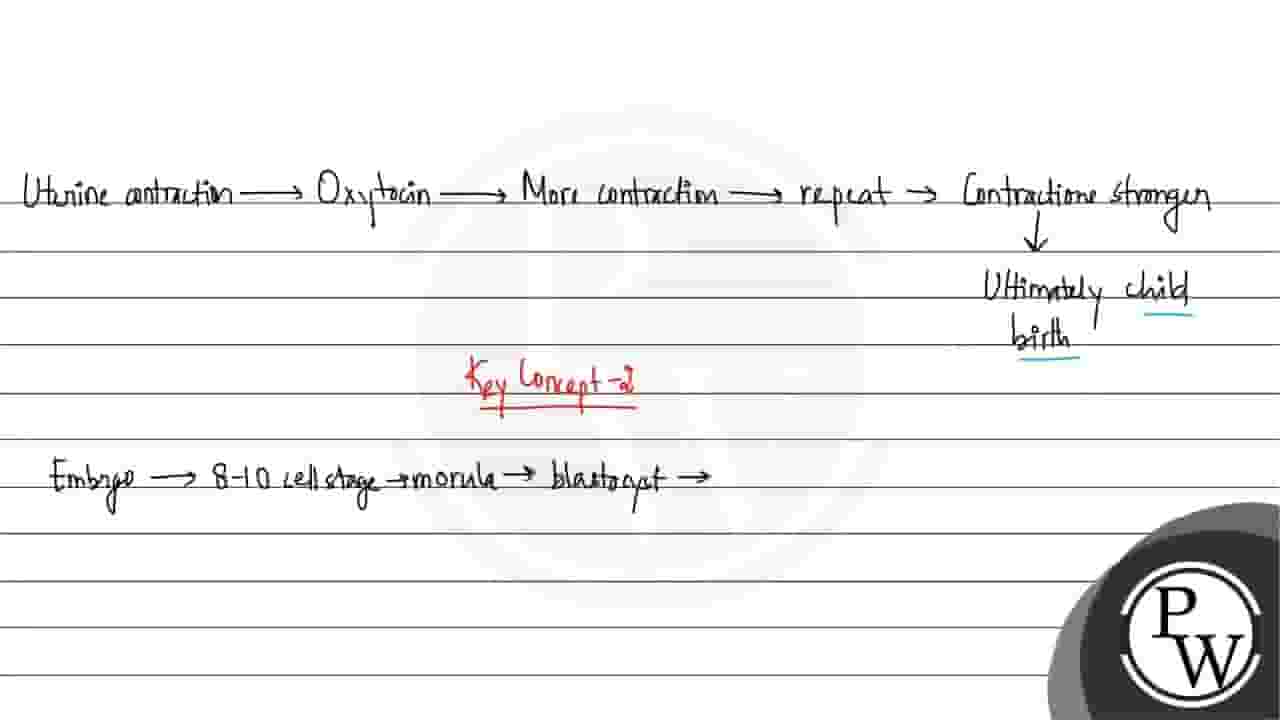 Uterine contraction → Oxytocin → More contraction → repeat → Contractions stronger
↓
Ultimately child
birth
Key Concept-2
Embryo → 8-10 cell stage → morula → blastocyst →
PW